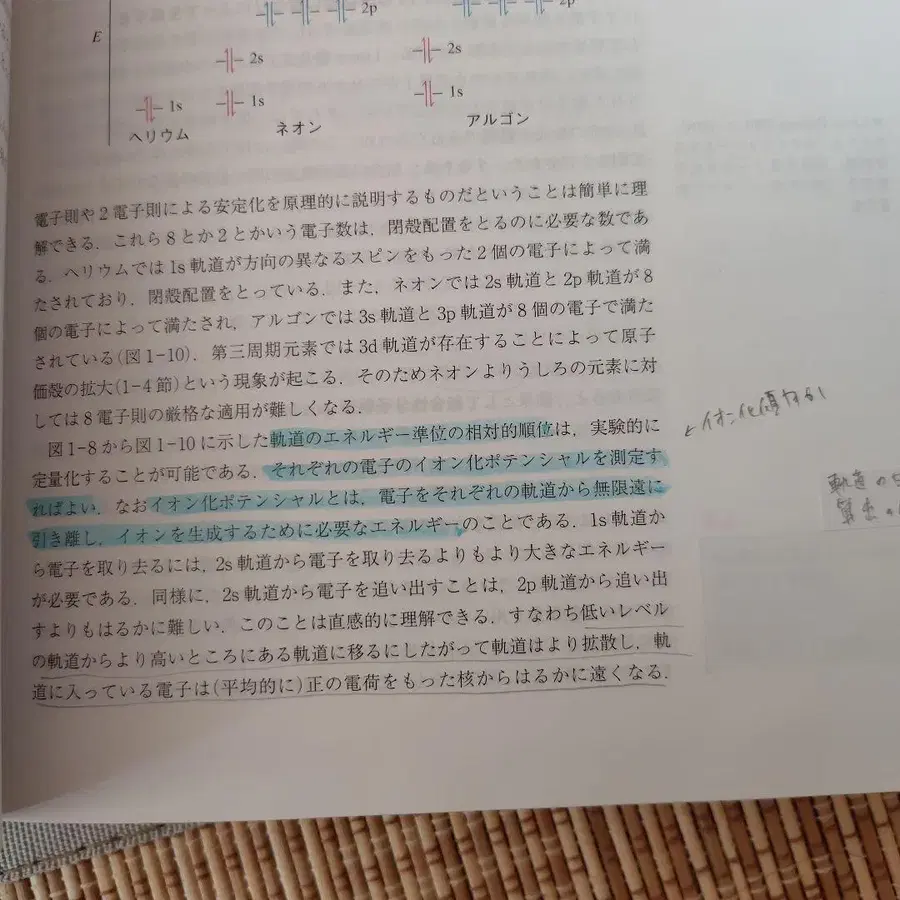 2p 2p
E
2s 2s
1s 1s 1s
ヘリウム ネオン アルゴン
電子則や2電子則による安定化を原理的に説明するものだということは簡単に理
解できる．これら8とか2とかいう電子数は，閉殻配置をとるのに必要な数であ
る．ヘリウムでは1s軌道が方向の異なるスピンをもった2個の電子によって満
たされており，閉殻配置をとっている．また，ネオンでは2s軌道と2p軌道が8
個の電子によって満たされ，アルゴンでは3s軌道と3p軌道が8個の電子で満た
されている(図1-10)．第三周期元素では3d軌道が存在することによって原子
価殻の拡大(1-4節)という現象が起こる．そのためネオンよりうしろの元素に対
しては8電子則の厳格な適用が難しくなる．
図1-8から図1-10に示した軌道のエネルギー準位の相対的順位は，実験的に
定量化することが可能である．それぞれの電子のイオン化ポテンシャルを測定す
ればよい．なおイオン化ポテンシャルとは，電子をそれぞれの軌道から無限遠に
引き離し，イオンを生成するために必要なエネルギーのことである．1s軌道か
ら電子を取り去るには，2s軌道から電子を取り去るよりもより大きなエネルギー
が必要である．同様に，2s軌道から電子を追い出すことは，2p軌道から追い出
すよりもはるかに難しい．このことは直感的に理解できる．すなわち低いレベル
の軌道からより高いところにある軌道に移るにしたがって軌道はより拡散し，軌
道に入っている電子は(平均的に)正の電荷をもった核からはるかに遠くなる．
イオン化
軌道の